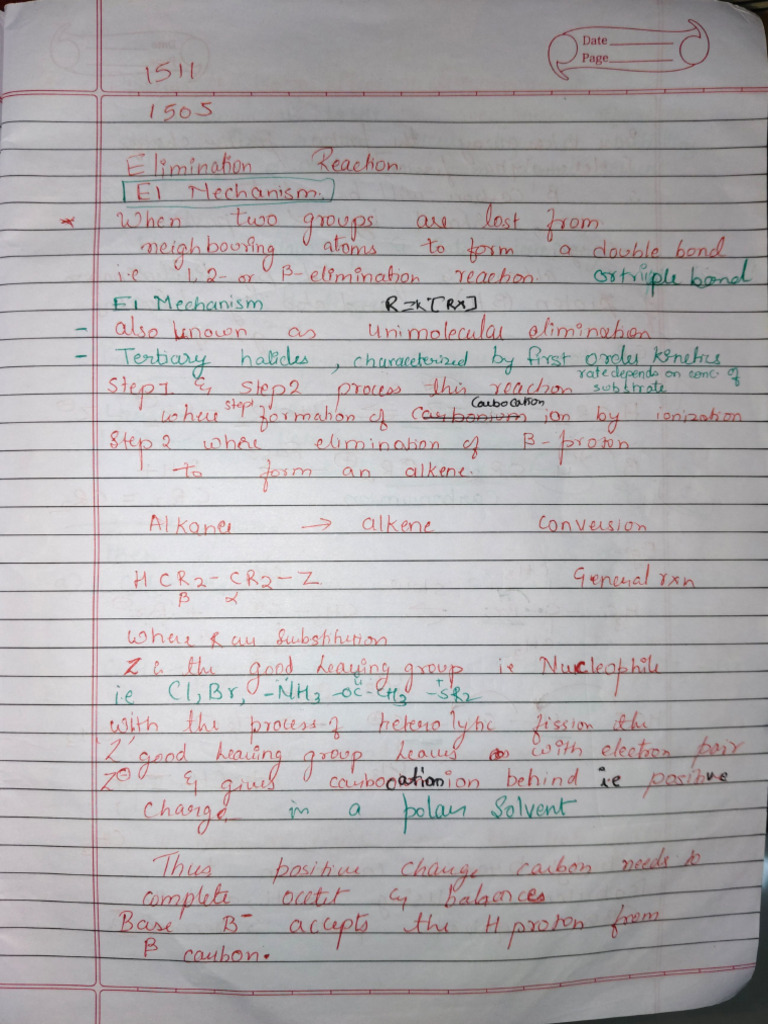 Date
Page
1511
1505
Elimination Reaction
E1 Mechanism.
* When two groups are lost from
neighbouring atoms to form a double bond
i.e 1,2- or β-elimination reaction. or triple bond
E1 Mechanism R=k[Rx]
- also known as unimolecular elimination
- Tertiary halides, characterized by first order kinetics
rate depends on conc. of
Step 1 & Step 2 process this reaction substrate
where step 1 formation of Carbocation ion by ionization
Step 2 where elimination of β-proton
to form an alkene.
Alkanes → alkene Conversion
H CR2-CR2-Z General rxn
β α
Where R are Substitution
Z is the good leaving group ie Nucleophile
ie Cl, Br, -NH3
With the process of heterolytic fission the
'Z' good leaving group leaves with electron pair
Z⊖ & gives carbocation ion behind ie positive
charge in a polar Solvent
Thus positive charge carbon needs to
complete octet & balances
Base B⁻ accepts the H proton from
β carbon.